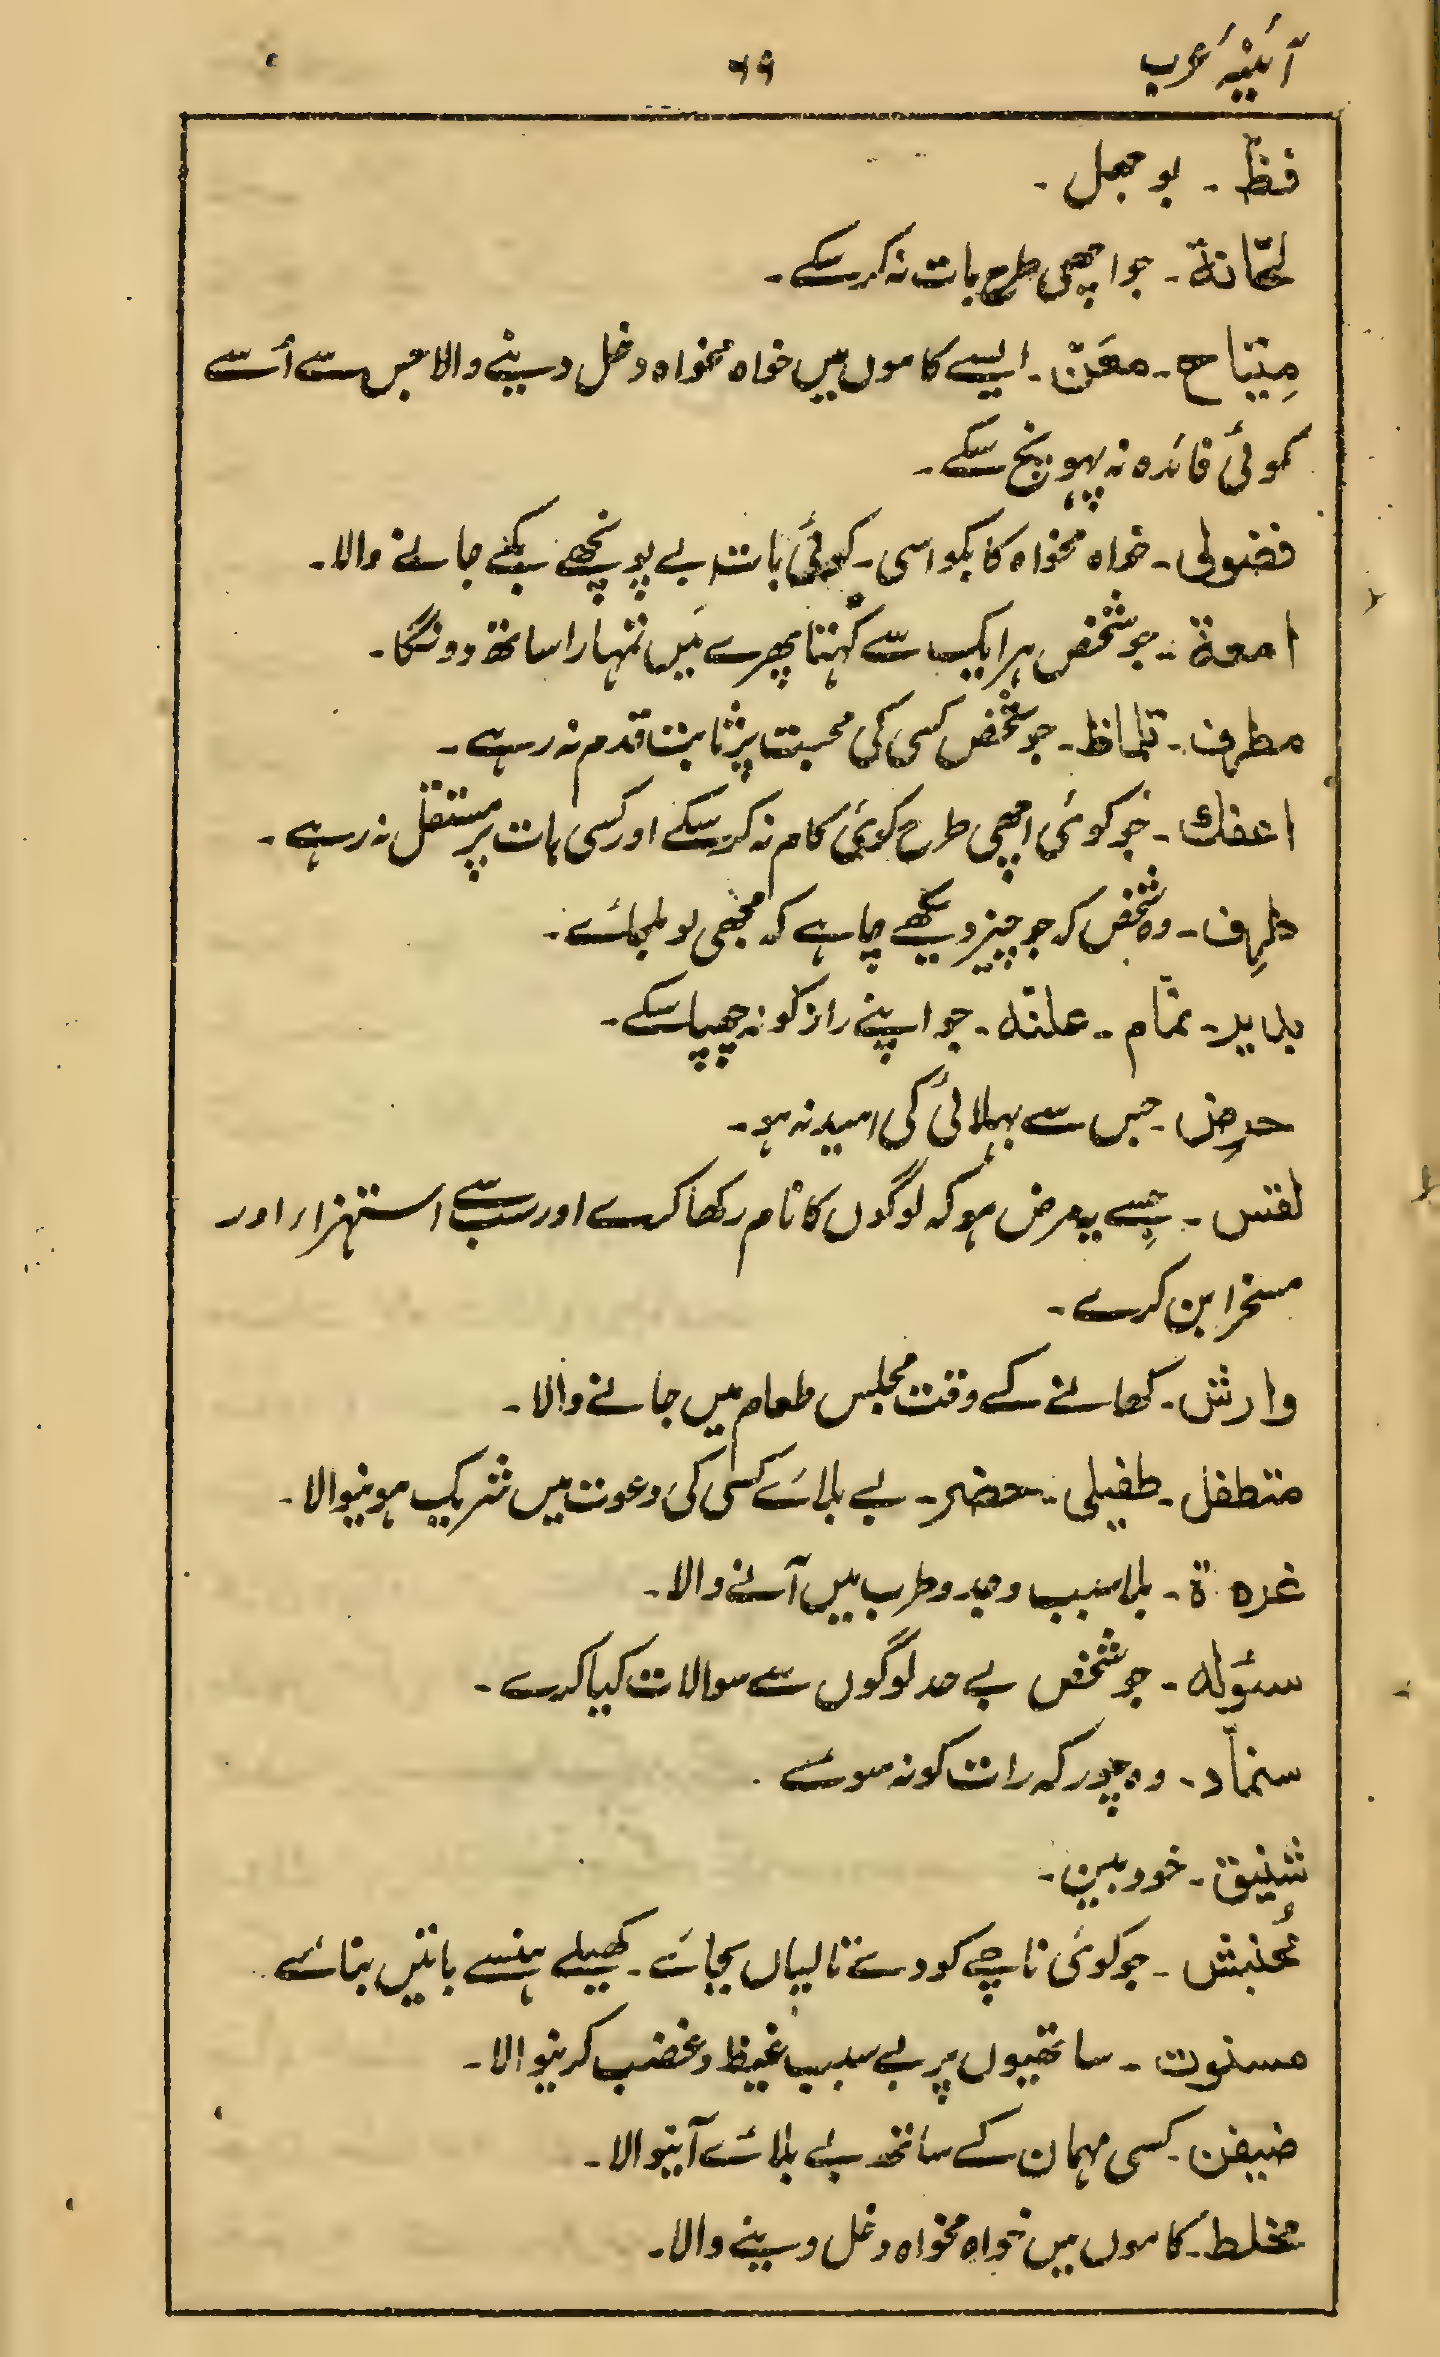 آئینۂ عرب ۶۹
فظّ ۔ بوجھل ۔
لحّانة ۔ جو اچھی طرح بات نہ کرسکے ۔
مِتیاح ۔ معَنّ ۔ ایسے کاموں میں خواہ مخواہ دخل دینے والا جس سے اُسے
کوئی فائدہ نہ پہونچ سکے ۔
فضولی ۔ خواہ مخواہ کا بکواسی ۔ کوئی بات بے پونچھے بکے جانے والا ۔
امعة ۔ جو شخص ہر ایک سے کہتا پھرے میں تمہارا ساتھ دونگا ۔
مطرف ۔ تلماظ ۔ جو شخص کسی کی محبت پر ثابت قدم نہ رہے ۔
اعفك ۔ جو کوئی اچھی طرح کوئی کام نہ کرسکے اور کسی بات پر مستقل نہ رہے ۔
طرِف ۔ وہ شخص کہ جو چیز دیکھے چاہے کہ مجھی کو ملجائے ۔
بذیر ۔ نمّام ۔ علنه ۔ جو اپنے راز کو نہ چھپا سکے ۔
حرِض ۔ جس سے بہلائی کی امید نہ ہو ۔
لقس ۔ جِسے یہ مرض ہو کہ لوگوں کا نام رکھا کرے اور سب سے استہزار اور
مسخرا پن کرے ۔
وارش ۔ کھانے کے وقت مجلس طعام میں جانے والا ۔
متطفل ۔ طفیلی ۔ حضر ۔ بے بلائے کسی کی دعوت میں شریک ہونیوالا ۔
عزہ ۔ بلا سبب وجد و طرب میں آنے والا ۔
سئوله ۔ جو شخص بے حد لوگوں سے سوالات کیا کرے ۔
سنمّاد ۔ وہ چور کہ رات کو نہ سوئے
شِنیق ۔ خود بین ۔
عُنبش ۔ جو کوئی ناچے کودے تالیاں بجائے ۔ کھیلے ہنسے باتیں بنائے ۔
مسنوت ۔ ساتھیوں پر بے سبب غیظ و غضب کرنیوالا ۔
ضیفن ۔ کسی مہمان کے ساتھ بے بلائے آنیوالا ۔
مخلط ۔ کاموں میں خواہ مخواہ دخل دینے والا ۔